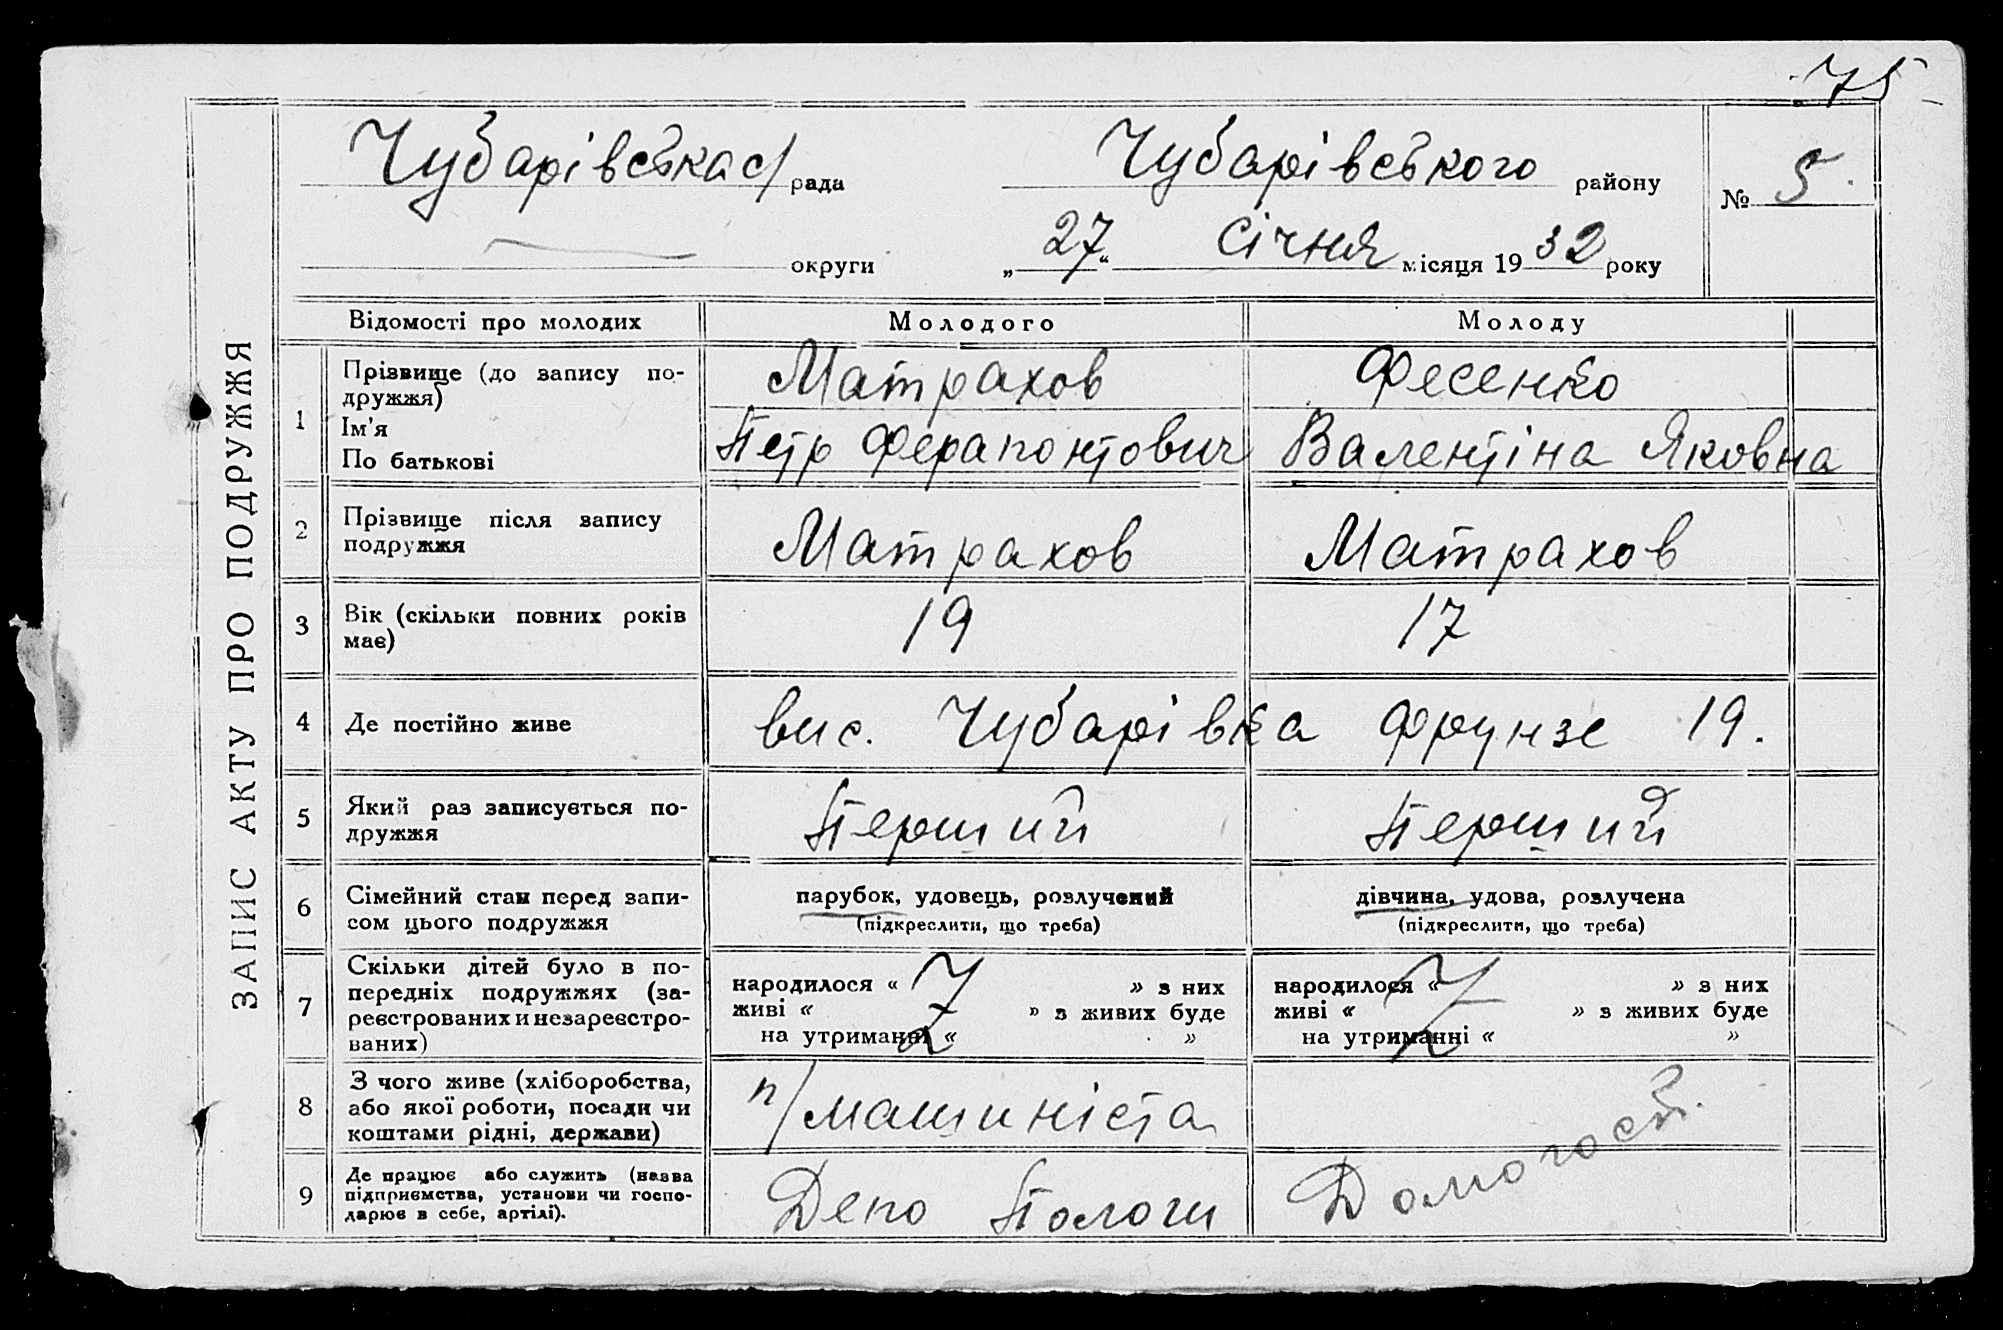 75
ЗАПИС АКТУ ПРО ПОДРУЖЖЯ
Чубарівська с/ рада Чубарівського району № 5.
округи „27“ Січня місяця 1932 року
Відомості про молодих Молодого Молоду
1 Прізвище (до запису по-
дружжя) Матрахов Фесенко
Ім'я
По батькові Петр Ферапонтович Валентіна Яковна
2 Прізвище після запису
подружжя Матрахов Матрахов
3 Вік (скільки повних років
має) 19 17
4 Де постійно живе вис. Чубарівка Фрунзе 19.
5 Який раз записується по-
дружжя Перший Перший
6 Сімейний стан перед запи-
сом цього подружжя
парубок, удовець, розлучений
(підкреслити, що треба)
дівчина, удова, розлучена
(підкреслити, що треба)
7 Скільки дітей було в по-
передніх подружжях (за-
реєстрованих и незареєстро-
ваних)
народилося « » з них
живі « » з живих буде
на утриманні « »
народилося « » з них
живі « » з живих буде
на утриманні « »
8 З чого живе (хліборобства,
або якої роботи, посади чи
коштами рідні, держави) п/машиніста
9 Де працює або служить (назва
підприємства, установи чи госпо-
дарює в себе, артілі). Депо Пологи Домогосп.